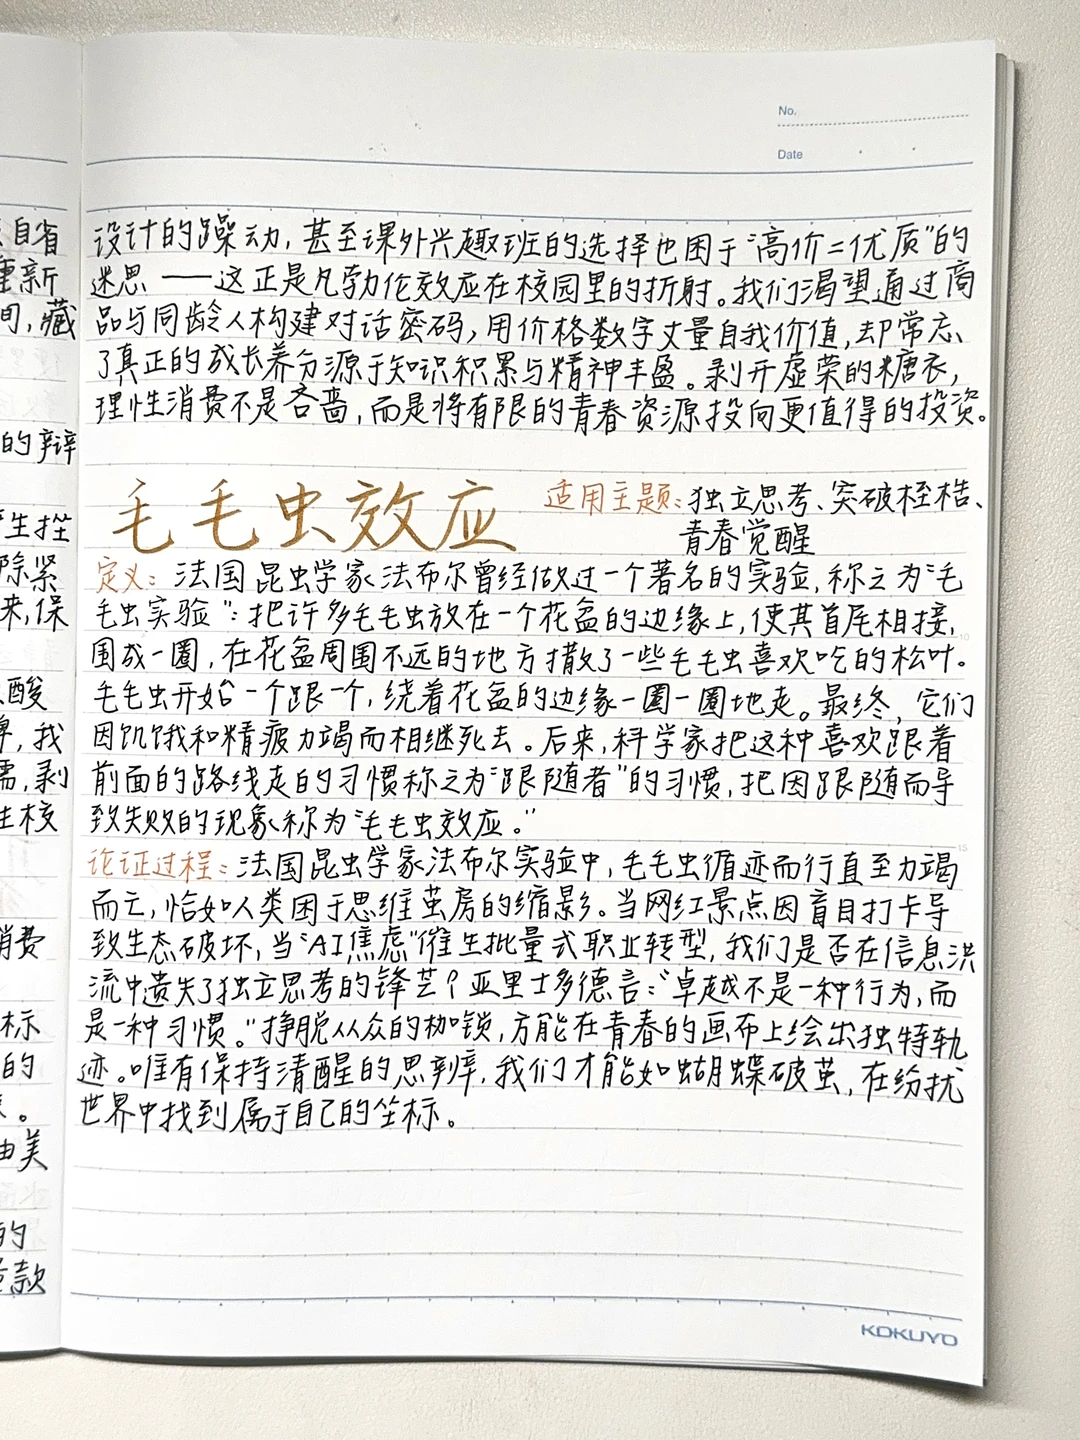 No.
Date
设计的躁动,甚至课外兴趣班的选择也困于“高价=优质”的
迷思——这正是凡勃伦效应在校园里的折射。我们渴望通过商
品与同龄人构建对话密码,用价格数字丈量自我价值,却常忘
了真正的成长养分源于知识积累与精神丰盈。剥开虚荣的糖衣,
理性消费不是吝啬,而是将有限的青春资源投向更值得的投资。
毛毛虫效应
适用主题:独立思考、突破桎梏、
青春觉醒
定义:法国昆虫学家法布尔曾经做过一个著名的实验,称之为“毛
毛虫实验”:把许多毛毛虫放在一个花盆的边缘上,使其首尾相接,
围成一圈,在花盆周围不远的地方撒了一些毛毛虫喜欢吃的松叶。
毛毛虫开始一个跟一个,绕着花盆的边缘一圈一圈地走。最终,它们
因饥饿和精疲力竭而相继死去。后来,科学家把这种喜欢跟着
前面的路线走的习惯称之为“跟随者”的习惯,把因跟随而导
致失败的现象称为“毛毛虫效应。”
论证过程:法国昆虫学家法布尔实验中,毛毛虫循迹而行直至力竭
而亡,恰如人类困于思维茧房的缩影。当网红景点因盲目打卡导
致生态破坏,当“AI焦虑”催生批量式职业转型,我们是否在信息洪
流中遗失了独立思考的锋芒?亚里士多德言:“卓越不是一种行为,而
是一种习惯。”挣脱从众的枷锁,方能在青春的画布上绘出独特轨
迹。唯有保持清醒的思辨,我们才能如蝴蝶破茧,在纷扰
世界中找到属于自己的坐标。
KOKUYO
自省
重新
间,藏
的辩
生拴
除紧
来,保
酸
我
需,剥
核
消费
标
的
由美
的
款